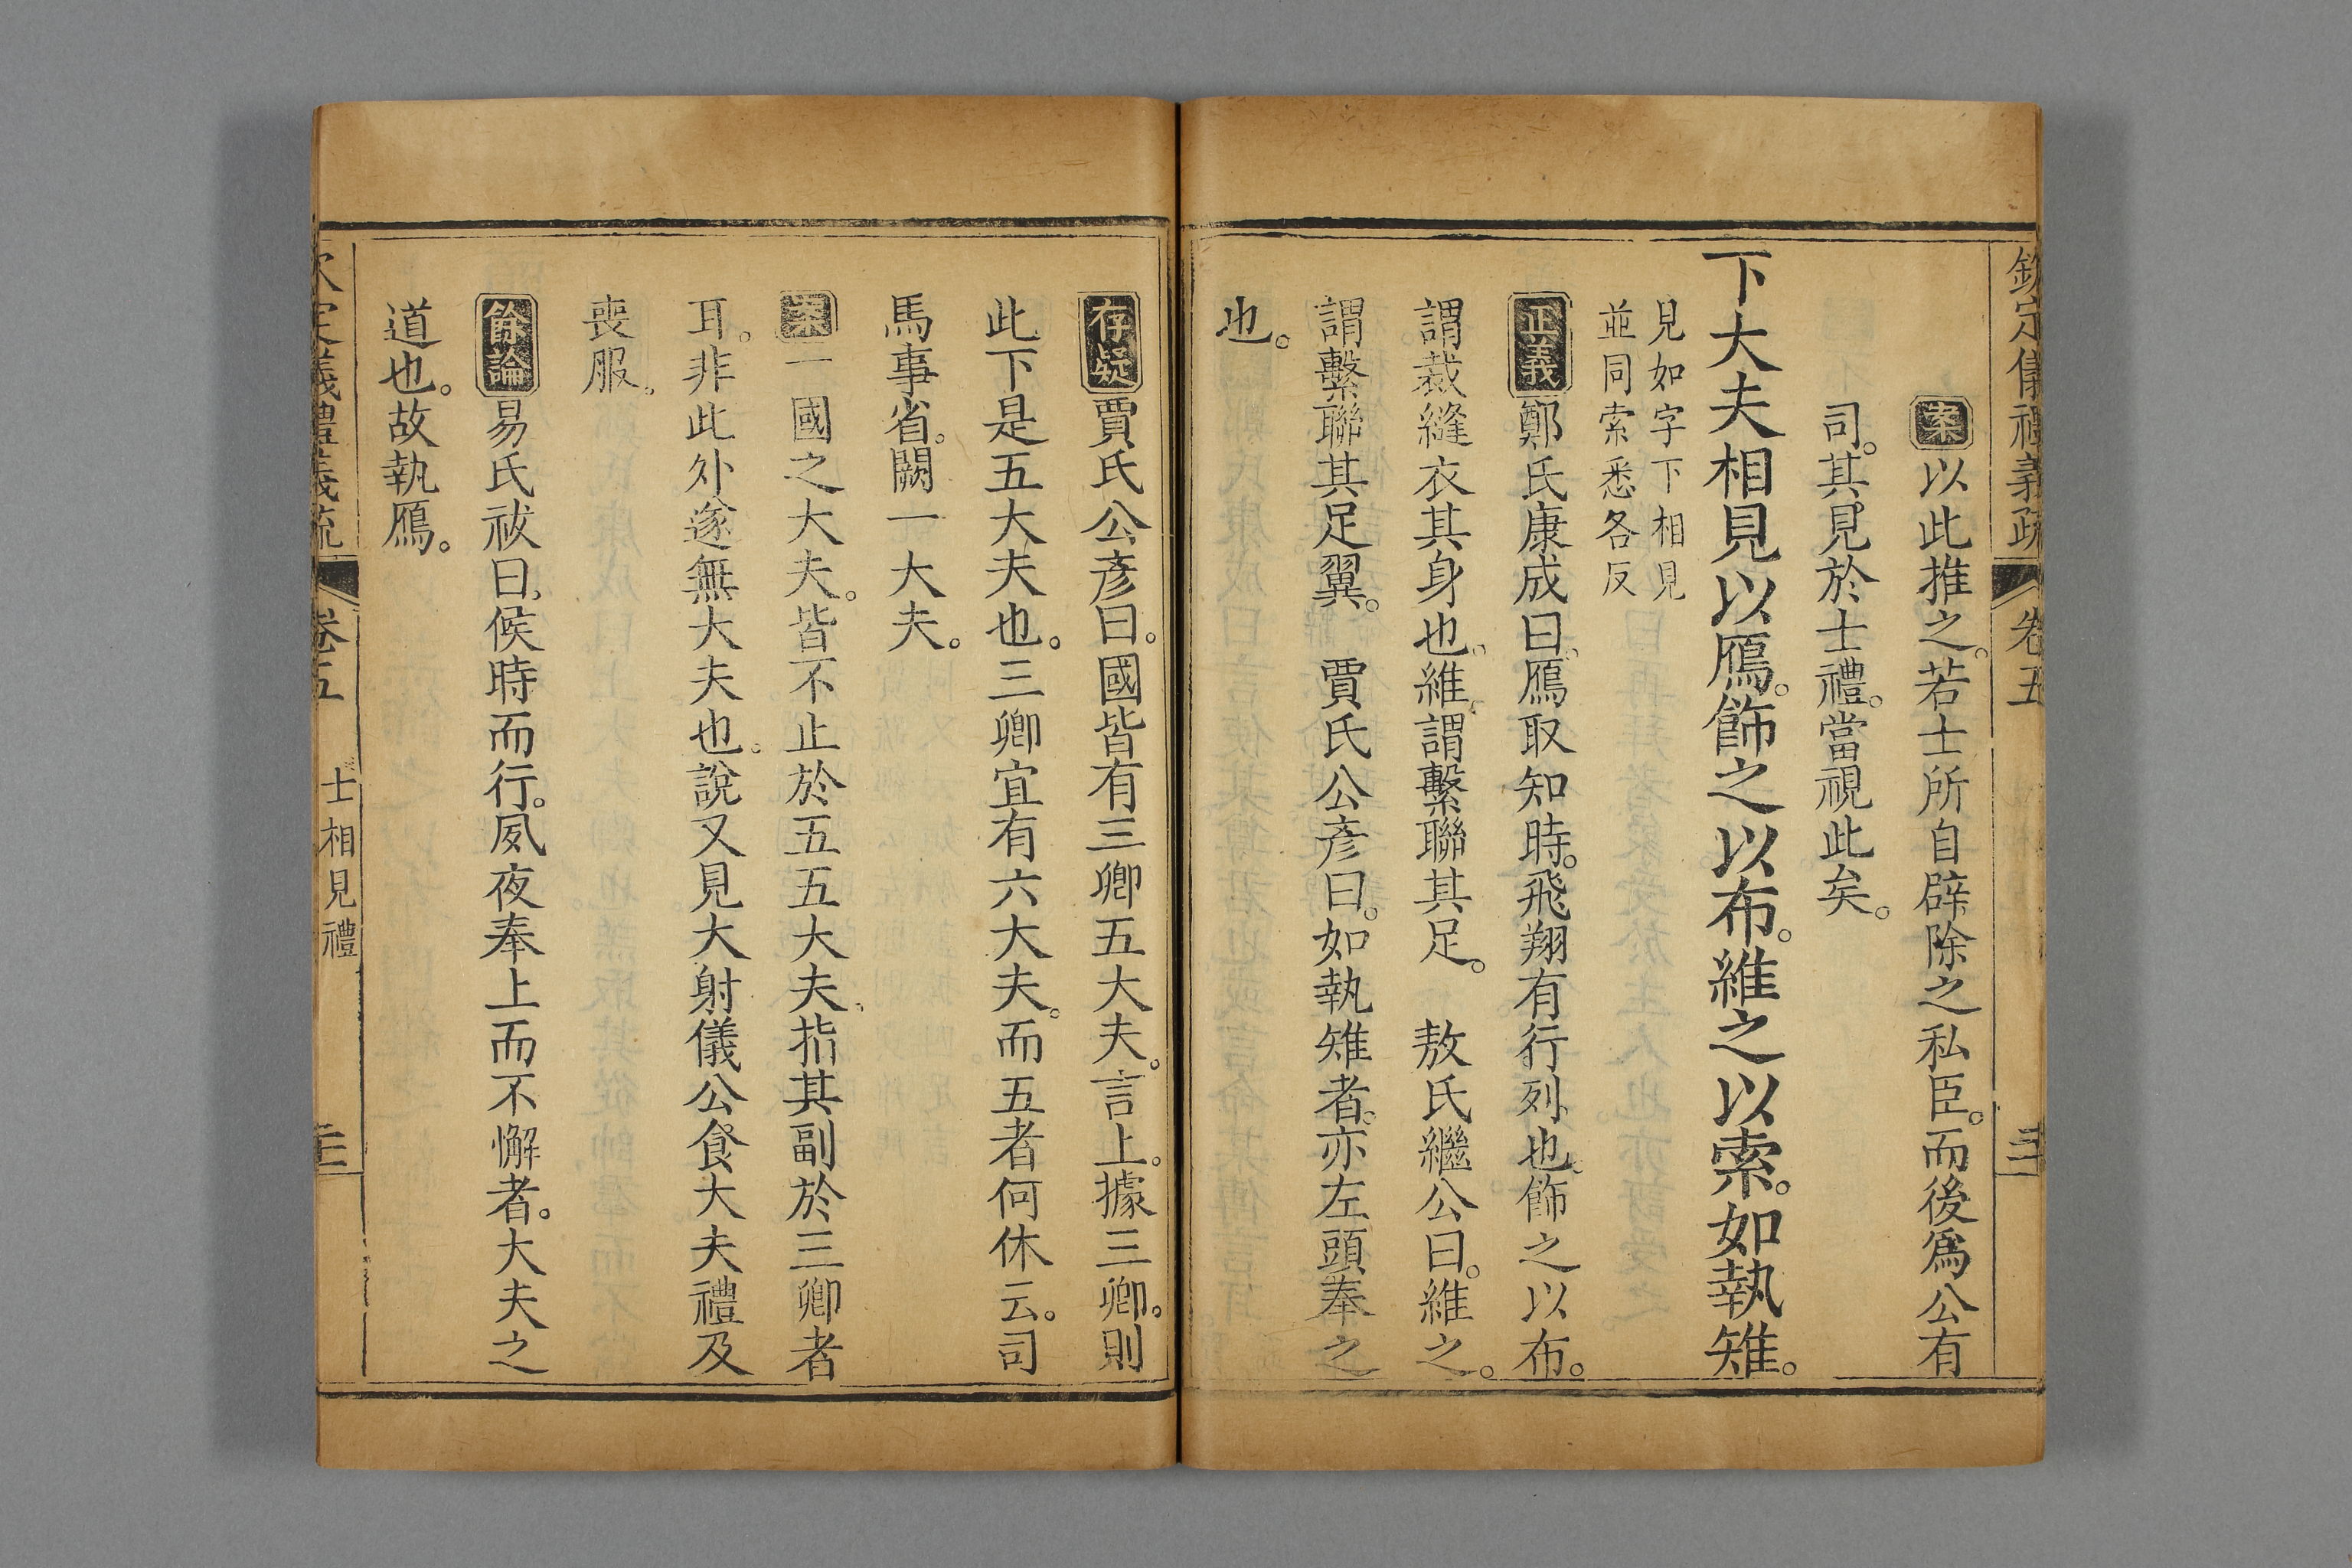 欽定儀禮義疏 卷五
案以此推之。若士所自辟除之私臣。而後爲公有
司。其見於士禮。當視此矣。
下大夫相見以鴈。飾之以布。維之以索。如執雉。
見如字下相見
並同索悉各反
正義鄭氏康成曰。鴈取知時。飛翔有行列也。飾之以布。
謂裁縫衣其身也。維。謂繫聯其足。 敖氏繼公曰。維之。
謂繫聯其足翼。 賈氏公彥曰。如執雉者。亦左頭奉之
也。
存疑賈氏公彥曰。國皆有三卿五大夫。言上。據三卿。則
此下是五大夫也。三卿宜有六大夫。而五者何休云。司
馬事省。闕一大夫。
案一國之大夫。皆不止於五五大夫。指其副於三卿者
耳。非此外遂無大夫也。說又見大射儀公食大夫禮及
喪服。
餘論易氏祓曰。候時而行。夙夜奉上而不懈者。大夫之
道也。故執鴈。
欽定儀禮義疏 卷五 士相見禮